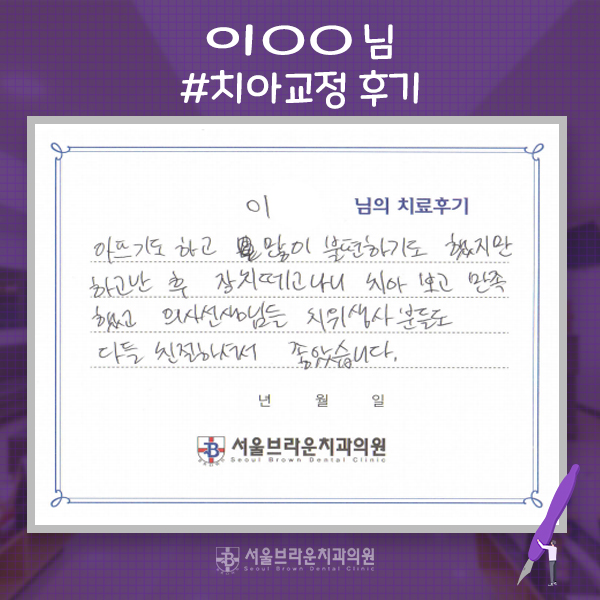 이○○ 님
#치아교정 후기
이 님의 치료후기
아프기도 하고 많이 불편하기도 했지만
하고난 후 장치떼고나니 치아 보고 만족
했고 의사선생님들 치위생사 분들도
다들 친절하셔서 좋았습니다.
년 월 일
서울브라운치과의원
Seoul Brown Dental Clinic
서울브라운치과의원
Seoul Brown Dental Clinic